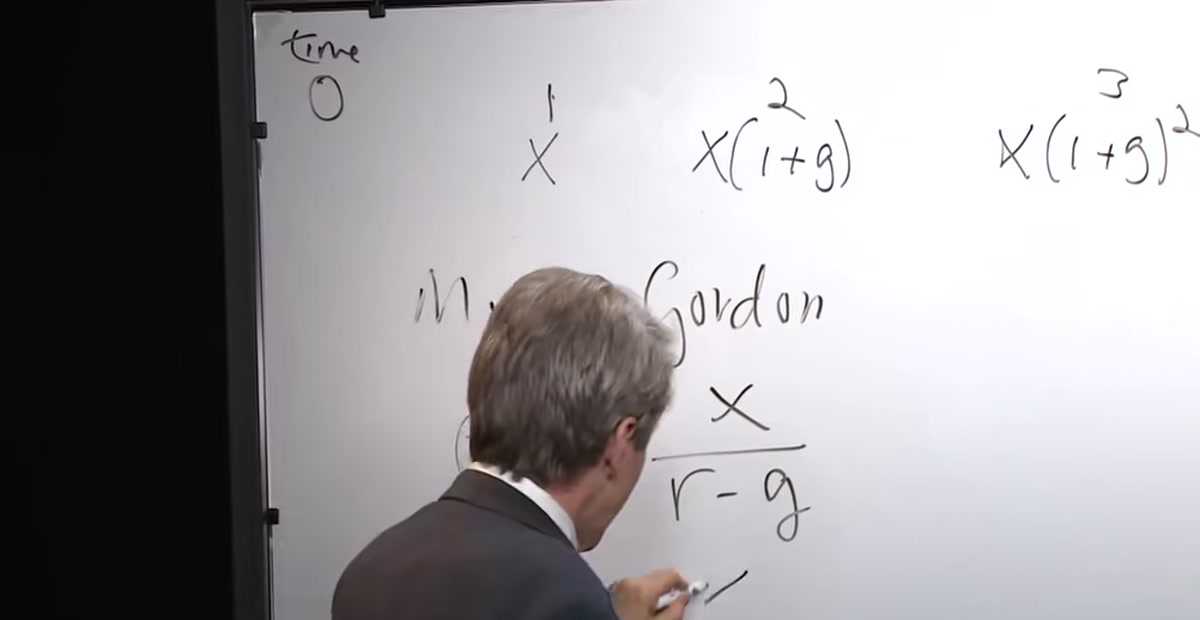 time
0 1 2 3
x x(1+g) x(1+g)²
Gordon
x
r-g